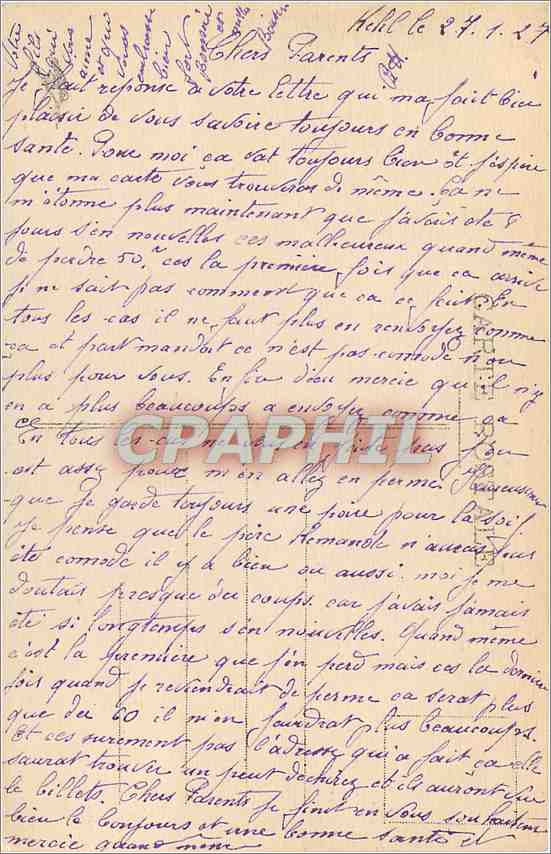 Kehl le 27.1.27
Chers Parents
Je fait reponse a votre lettre qui ma fait bien
plaisir de vous savoire toujours en bonne
santé. Pour moi ca vat toujours bien et j'espère
que ma carte vous trouveras de même. Ça ne
m'étonne plus maintenant que j'avais été 8
jours s'en nouvelles ces malheureux quand même
de perdre 50. ces la première fois que ca arrive
je ne sait pas comment que ca ce fait. En
tous les cas il ne faut plus en renvoyez comme
ça et part mandat ce n'est pas comode non
plus pour vous. Enfin dieu mercie qu'il n'y
en a plus beaucoups a envoyez comme ça
En tous les cas ne
est assez pour m'en allez en perme. Heureusement
que je garde toujours une poire pour la soif
Je pense que le père n'auras pas
été comode il y a bien ou aussi. moi je me
doutais presque du coups. car j'avais jamais
été si longtemps s'en nouvelles. Quand même
c'est la première que j'en perd mais ces la dernière
fois quand je reviendrait de perme ca serat plus
que du 60 il m'en faudrat plus beaucoups.
Et ces surement pas l'adresse qui a fait ça elle
saurat trouver un peut déchirez et ils auront vu
le billets. Chers Parents je finit en vous souhaitant
bien le bonjours et une bonne santé et
mercie quand même
Votre
fils
qui
vous
aime
et qui
vous
embrasse
bien
fort
Bonsoir
et
bonne
CARTE POSTALE
CPAPHIL